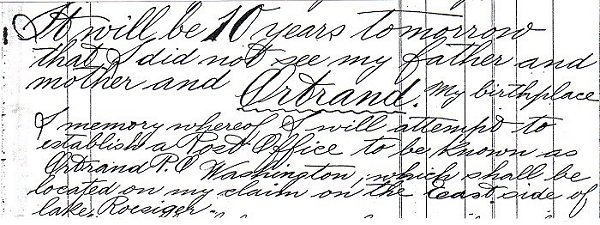 It will be 10 years tomorrow
that I did not see my father and
mother and Ortrand. My birthplace
I memory whereof I will attempt to
establish a Post Office to be known as
Ortrand P.O Washington, which shall be
located on my claim on the East side of
lake Roesiger.